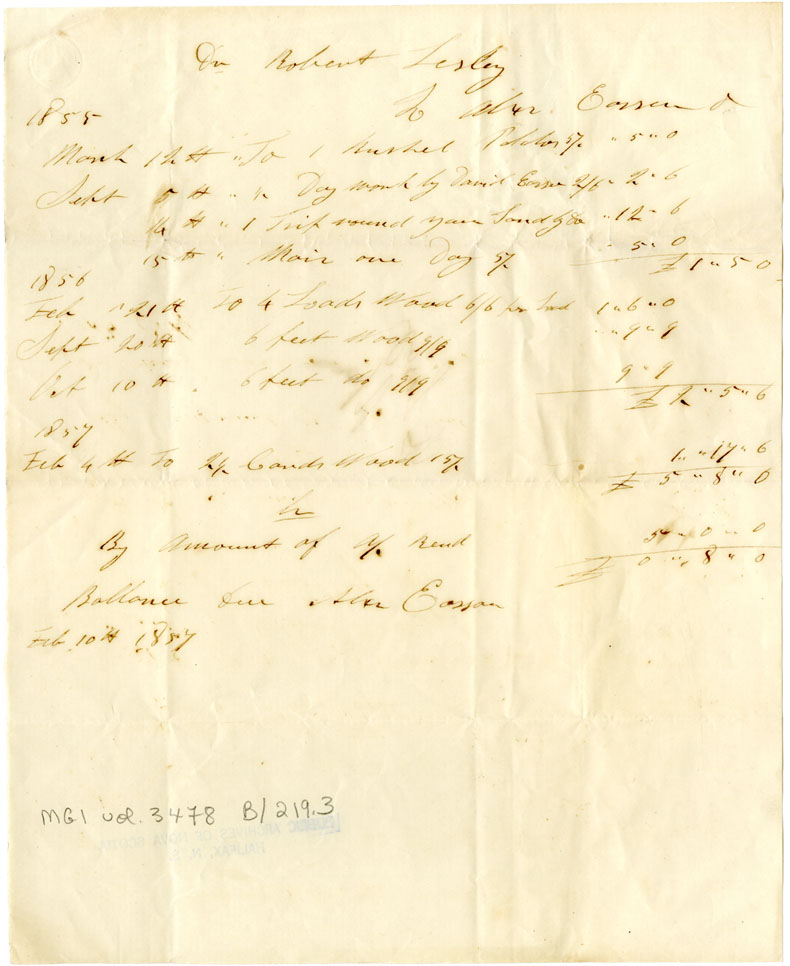 Dr Robert Lesley
To Alexr. Easson Dr
1855
March 12th " To 1 Bushel Potatos 5/ " 5 " 0
Sept 5th " " Day work by David Easson 2/6 " 2 " 6
14th " 1 Trip round your Land " 12 " 6
15th " Mair one Day 5/ " 5 " 0
£ 1 " 5 0
1856
Feb " 21th To 4 Loads Wood 6/6 per Load 1 " 6 " 0
Sept 20th 6 feet Wood 9/9 " " 9 " 9
Oct 10th . 6 feet do 9/9 9 " 9
£ 2 " 5 " 6
1857
Feb 4th To 2½ Cords Wood 15/ 1 " 17 " 6
£ 5 " 8 " 0
Cr
By Amount of a/c Rend 5 " 0 " 0
£ 0 " 8 " 0
Ballance due Alexr Easson
Feb 10th 1857
MG1 vol. 3478 B/219.3
PUBLIC ARCHIVES OF NOVA SCOTIA
HALIFAX, N.S.